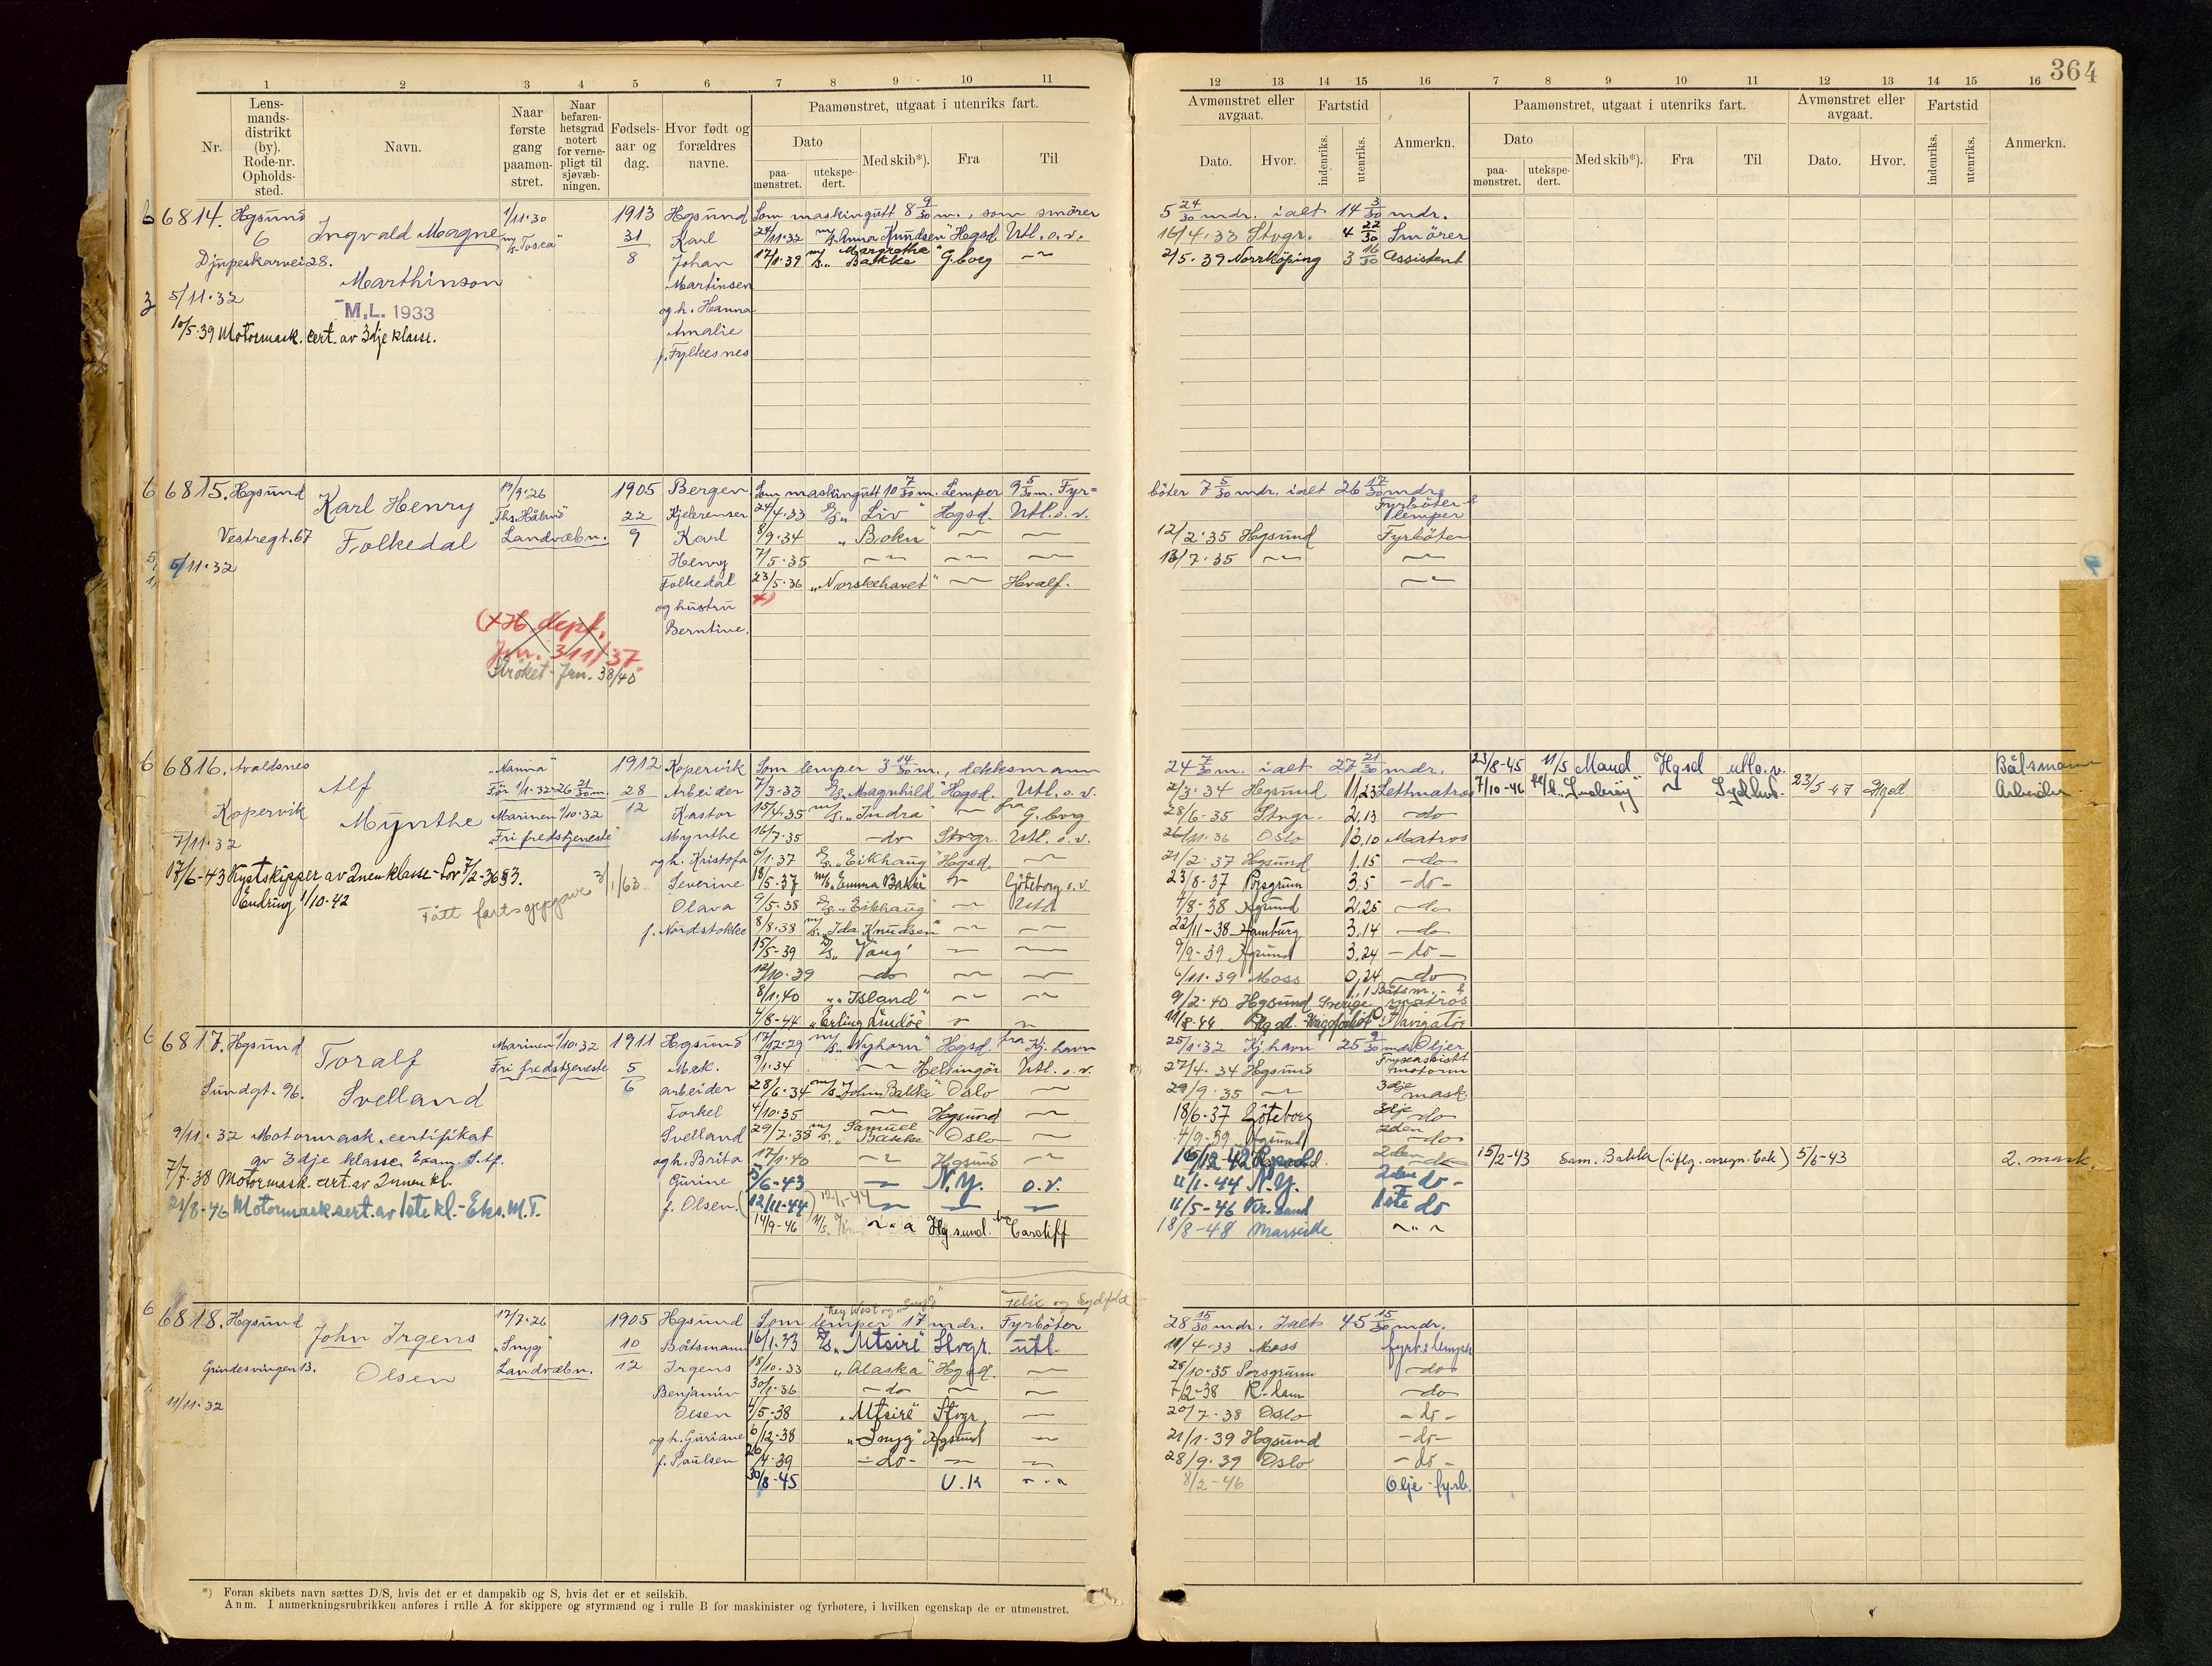 364
1 2 3 4 5 6 7 8 9 10 11
12 13 14 15 16 7 8 9 10 11 12 13 14 15 16
Nr.
Lens-
mands-
distrikt
(by).
Rode-nr.
Opholds-
sted.
Navn.
Naar
første
gang
paamøn-
stret.
Naar
befaren-
hetsgrad
notert
for verne-
pligt til
sjøvæb-
ningen.
Fødsels-
aar og
dag.
Hvor født og
forældres
navne.
Paamønstret, utgaat i utenriks fart.
Dato
paa-
mønstret.
utekspe-
dert.
Med skib*).
Fra
Til
Avmønstret eller
avgaat.
Dato.
Hvor.
Fartstid
indenriks.
utenriks.
Anmerkn.
Paamønstret, utgaat i utenriks fart.
Dato
paa-
mønstret.
utekspe-
dert.
Med skib*).
Fra
Til
Avmønstret eller
avgaat.
Dato.
Hvor.
Fartstid
indenriks.
utenriks.
Anmerkn.
6 6814. Hgsund
6
Djupeskarvei 28.
5/11.32
Ingvald Magne
Marthinson
M.L. 1933
10/5.39 Motormask. cert. av 3dje klasse.
1/11.30
m/s "Tosca"
1913
31
8
Hgsund
Karl
Johan
Martinsen
og h. Hanna
Amalie
f. Fylkesnes
Som maskingutt 8 9/30 m., som smører 5 24/30 mdr. ialt 14 3/30 mdr.
24/11.32 m/s "Anna Knudsen" Hgsd. Utl. o.v. 16/4.33 Stvgr. 4 22/30 Smører
17/1.39 m/s "Margrethe Bakke" G.borg 2/5.39 Norrköping 3 16/30 Assistent
6 6815. Hgsund
Vestregt. 67
5/11.32
Karl Henry
Folkedal
19/9.26
"Ths. Håland"
Landvæbn.
1905
22
9
Bergen
Karl
Henry
Folkedal
og hustru
Berntine.
(x H. dept.
Jrn. 311/37.
Strøket - Jrn. 38/40
Som maskingutt 10 7/30 m. Lemper 9 5/30 m. Fyr=
bøter 7 5/30 mdr. ialt 26 17/30 mdr.
24/4.33 D/S "Liv" Hgsd. Utl. o.v. Fyrbøter & lemper
8/9.34 "Bokn" 12/2.35 Hgsund Fyrbøter
7/5.35 13/7.35
23/5.36 "Norskehavet" Hvalf.
x)
6 6816. Avaldsnes
Kopervik
7/11.32
Alf
Mynthe
17/6-43 Kystskipper av 2nen klasse - Lov 7/2-36 §3.
Endring 1/10-42
Fått fartsoppgave 3/1/63
"Nanna"
Før 1/1.32: 26 21/30 m.
Marinen 1/10.32
"Fri fredstjeneste"
1912
28
12
Kopervik
Arbeider
Kastor
Mynthe
og h. Kristofa
Severine
Olava
f. Nordstokke
Som lemper 3 14/30 m., dekksmann 24 7/30 m. ialt 27 21/30 mdr.
7/3.33 D/S "Magnhild" Hgsd. Utl. o.v. 2/3.34 Hgsund 11,23 Lettmatros
15/4.35 m/s "Indra" fra G.borg 28/6-35 Stvgr. 2,13 do
16/7.35 do Stvgr. Utl. o.v. 26/11.36 Oslo 13,10 Matros
6/1.37 D/S "Eikhaug" Hgsd 21/2.37 Hgsund 1,15 do
18/5-37 m/s "Emma Bakke" Göteborg o.v. 23/8-37 Porsgrunn 3,5 do
9/5-38 D/S "Eikhaug" Utl 4/8-38 Hgsund 2,25 do
8/8.38 m/s "Ida Knudsen" 22/11-38 Hamburg 3,14 do
15/5-39 D/S "Vang" 9/9-39 Hgsund 3,24 do
12/10.39 do 6/11.39 Moss 0,24 do
8/1.40 "Island" 9/2.40 Hgsund 1,1 Båtsm. & matros
4/8-44 "Erling Lindøe" 11/8-44 Hgsd. Navigatør
23/8-45 11/5 Maud Hgsd utl o.v. Båtsmann
7/10-46 Sydhvd. 23/5-47 Hgsd. Arbeider
6 6817. Hgsund
Sundgt. 96.
Toralf
Svelland
9/11.32 Motormask. certifikat
av 3dje klasse. Exam. S.Af.
7/7.38 Motormask. cert. av 2nen kl.
21/8-46 Motormask. sert. av 1ste kl. - Eks. M.T.
Marinen 1/10.32
Fri fredstjeneste
1911
5
6
Hgsund
Mek.
arbeider
Torkel
Svelland
og h. Brita
Gurine
f. Olsen.
17/12-29 m/s "Nyhorn" Hgsd. fra Kj.havn 25/1.32 Kj.havn 25 9/30 mdr Oljer
9/1.34 Helsingør Utl. o.v. 27/4.34 Hgsund
28/6.34 m/s "John Bakke" Oslo 29/9.35 3dje mask.
4/10.35 Hgsund 18/6-37 Göteborg 3dje do
29/7.38 m/s "Samuel Bakke" Oslo 4/9-39 Hgsund 2den do
17/1.40 Hgsund 16/12-42 2den do
5/6-43 N.Y. o.v. 11/1-44 N.Y. 2den do
(12/11-44) 12/1-44 11/5-46 Kr.sand 1ste do
14/9-46 Hg.sund. fra Cardiff 18/8-48 Marseille
15/2-43 Sam. Bakke (iflg. avregn.bok) 5/6-43 2. mask.
6 6818. Hgsund
Grindesvingen 13.
11/11.32
John Irgens
Olsen
17/7.26
"Snyg"
Landvæbn.
1905
10
12
Hgsund
Båtsmann
Irgens
Benjamin
Olsen
og h. Guriane
f. Paulsen
Key West og "Snyg" Felix og Sydfold
Som lemper 17 mdr. Fyrbøter 28 15/30 mdr. Ialt 45 15/30 mdr.
16/1.33 D/S "Utsire" Stvgr. utl. 11/4-33 Moss fyrb. & lemper
18/10.33 "Alaska" Hgsd. 28/10.35 Porsgrunn do
30/1-36 do 7/2-38 do
4/5-38 "Utsire" Stvgr. 20/7.38 Oslo do
6/12-38 "Snyg" Hgsund 21/1.39 Hgsund do
26/4.39 do 28/9.39 Oslo do
30/8-45 U.K 8/2-46 Olje-fyrb.
*) Foran skibets navn sættes D/S, hvis det er et dampskib og S, hvis det er et seilskib.
Anm. I anmerkningsrubrikken anføres i rulle A for skippere og styrmænd og i rulle B for maskinister og fyrbøtere, i hvilken egenskap de er utmønstret.